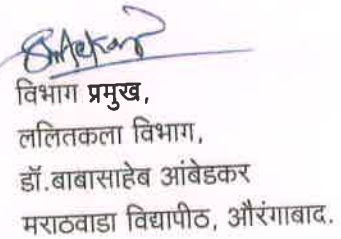 विभाग प्रमुख,
ललितकला विभाग,
डॉ.बाबासाहेब आंबेडकर
मराठवाडा विद्यापीठ, औरंगाबाद.